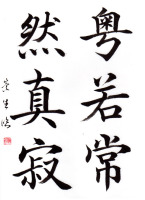 粤若常
然真寂